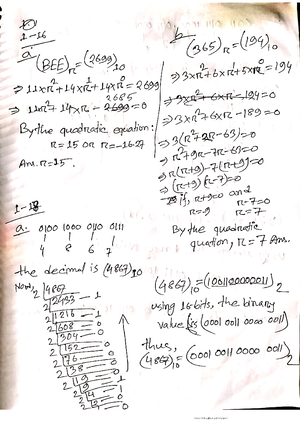 1-16
a
(BEE)r = (2699)10
⇒ 11xr² + 14xr¹ + 14xr⁰ = 2699
⇒ 11r² + 14r - 2685 = 0
By the quadratic equation:
r = 15 or r = -16.27
Ans. r = 15.
b
(365)r = (194)10
⇒ 3xr² + 6xr¹ + 5xr⁰ = 194
⇒ 3xr² + 6xr - 194 = 0
⇒ 3xr² + 6r - 189 = 0
⇒ 3(r² + 2r - 63) = 0
⇒ r² + 9r - 7r - 63 = 0
⇒ r(r+9) - 7(r+9) = 0
⇒ (r+9)(r-7) = 0
r+9=0 and r-7=0
r=9 r=7
By the quadratic
quation, r = 7 Ans.
1-18
a. 0100 1000 0110 0111
4 8 6 7
the decimal is (4867)10
Now,
2 4867
2 2433 - 1
2 1216 - 1
2 608 - 0
2 304 - 0
2 152 - 0
2 76 - 0
2 38 - 0
2 19 - 0
2 9 - 1
2 4 - 1
2 2 - 0
(4867)10 = (1001100000011)2
using 16 bits, the binary
value is (0001 0011 0000 0011)
thus,
(4867)10 = (0001 0011 0000 0011)2